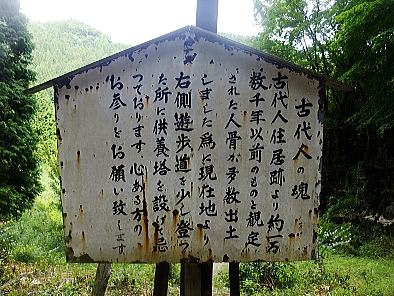 古代人の魂
古代人住居跡より約一万
数千年以前のものと観定
された人骨が多数出土
しました為に現在地より
右側遊歩道を少し登っ
た所に供養塔を設け忌
つております 心ある方の、
お参りをお願い致します